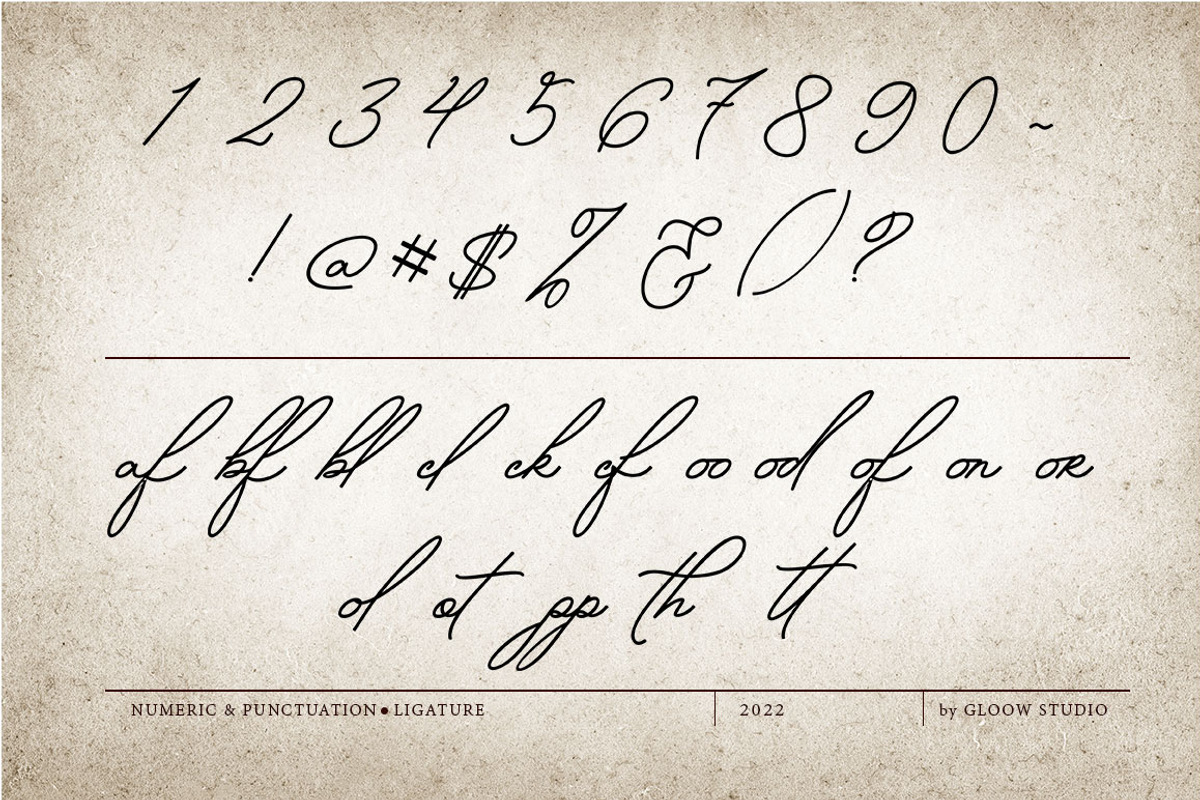 1 2 3 4 5 6 7 8 9 0 ~
! @ # $ % & ( ) ?
af bf bl cl ck cf oo od of on or
ol ot pp th tt
NUMERIC & PUNCTUATION●LIGATURE 2022 by GLOOW STUDIO